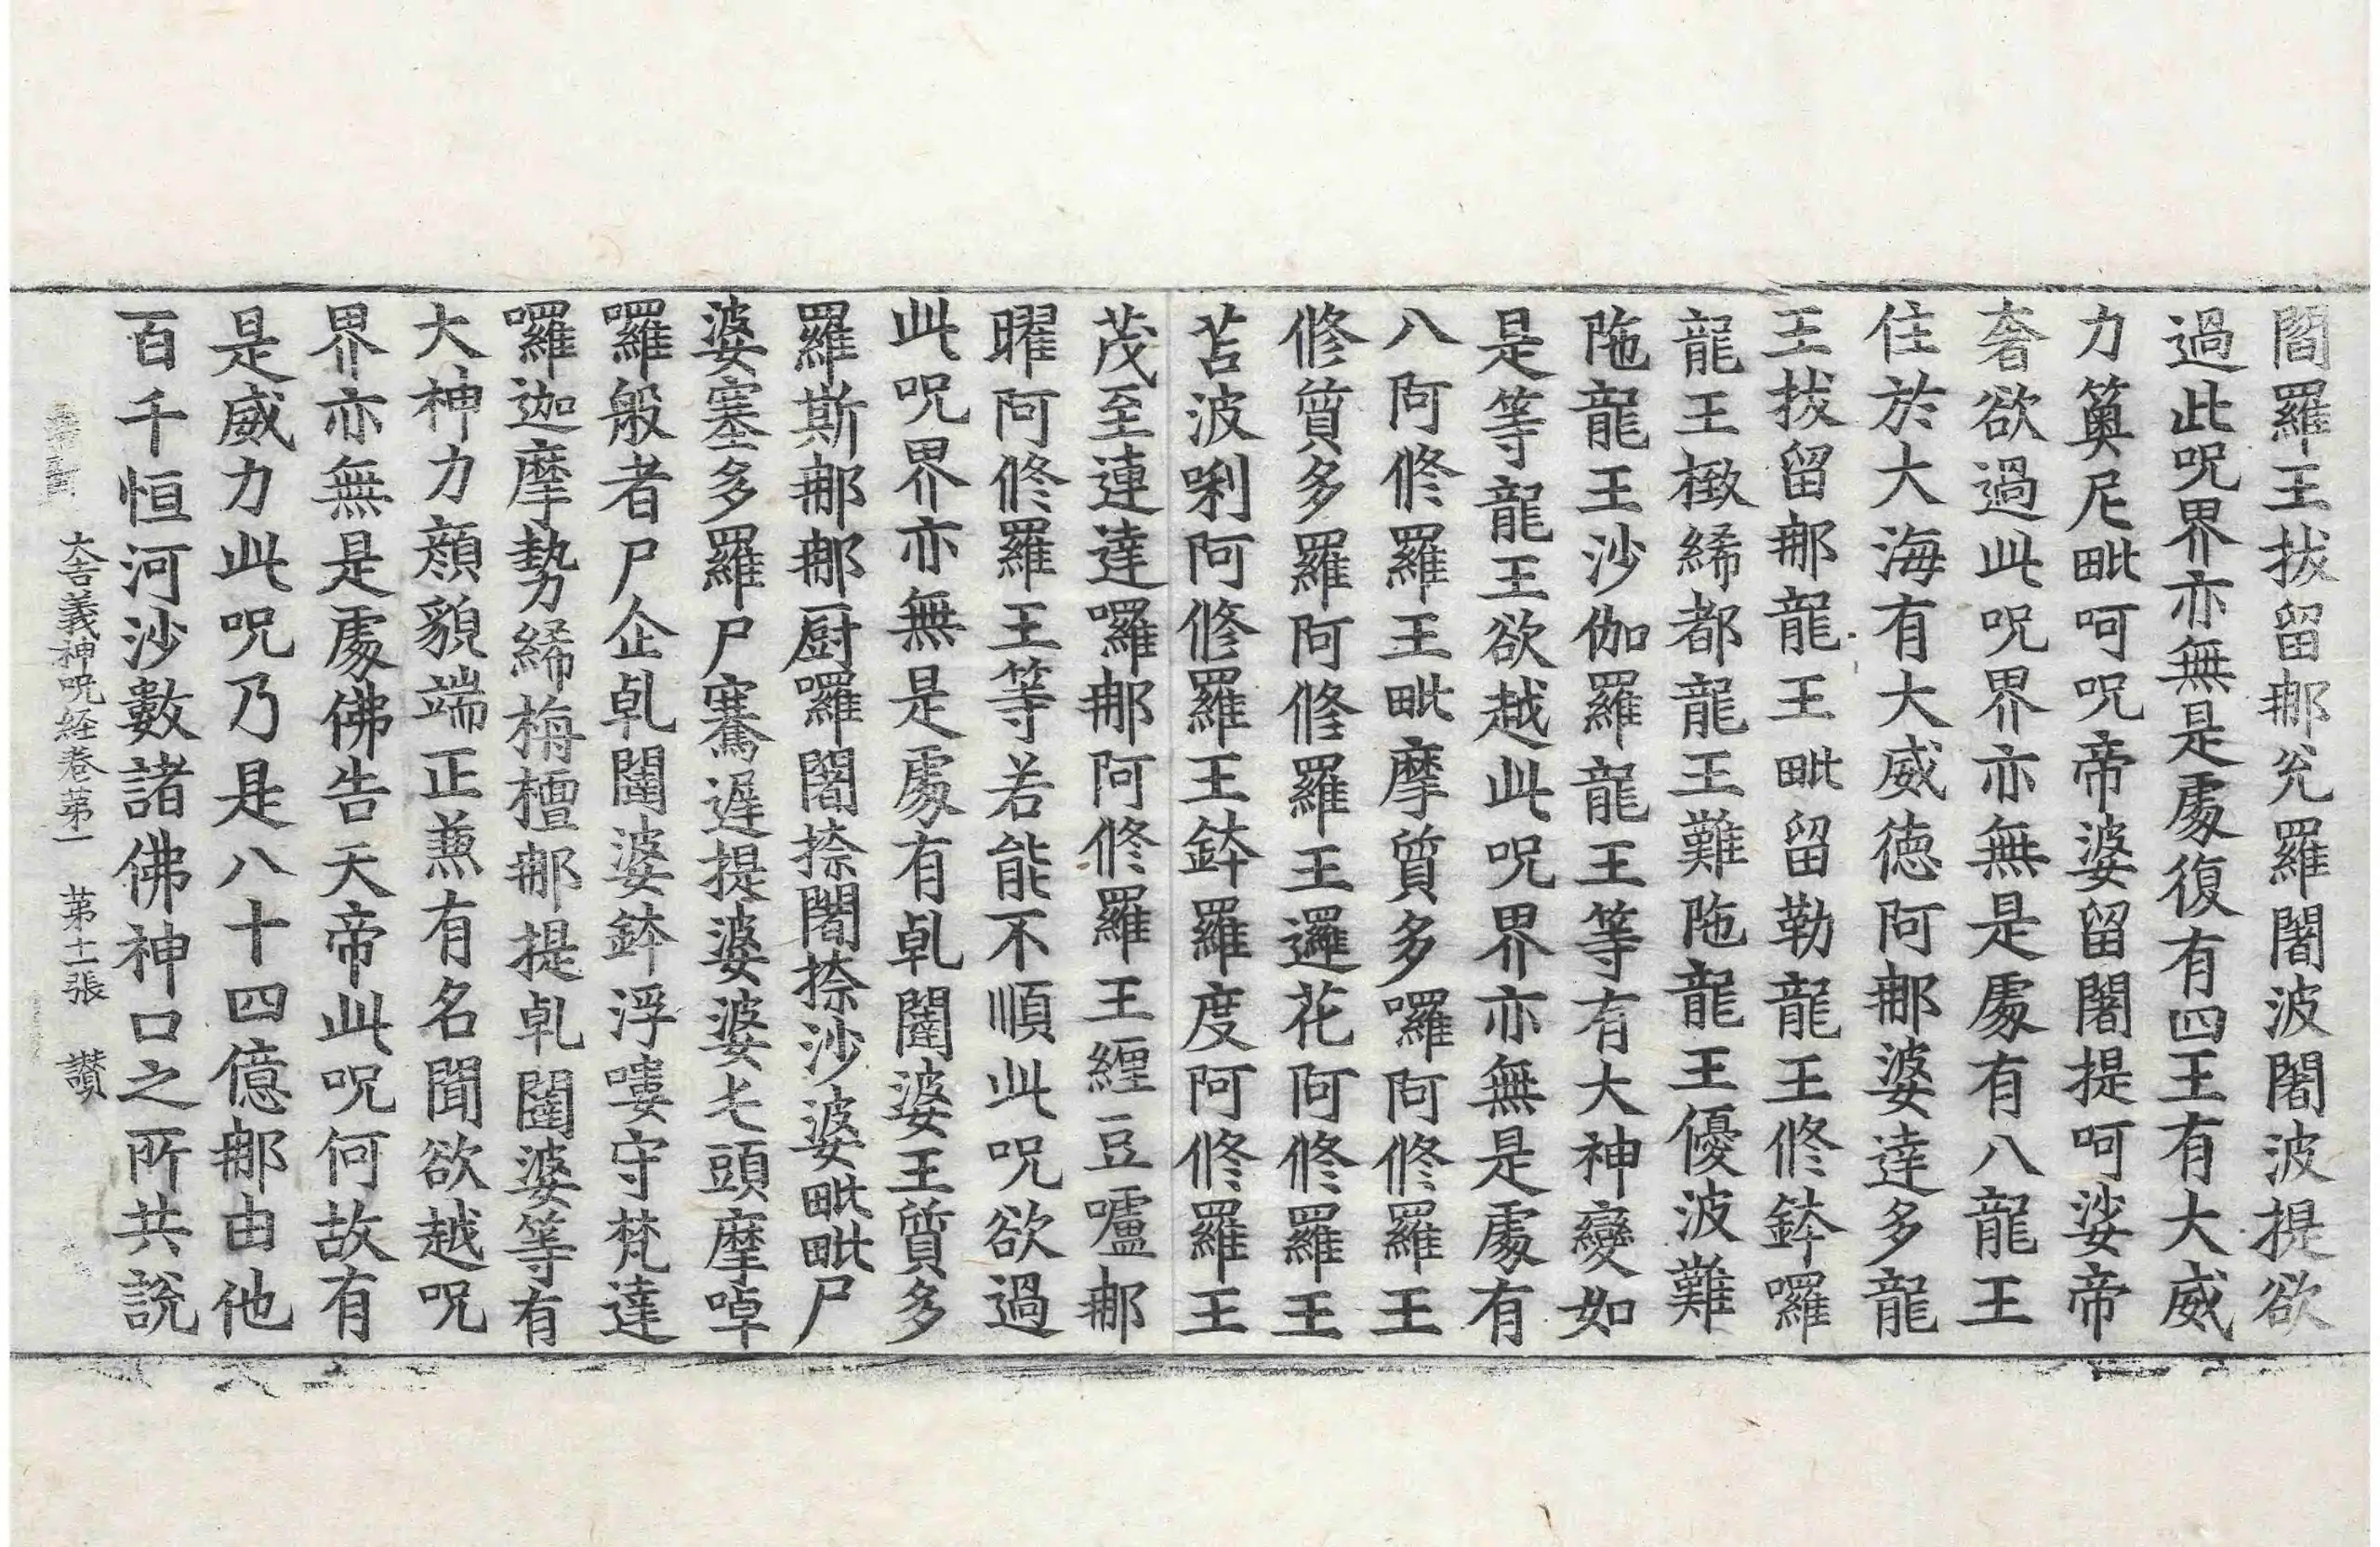 閻羅王拔留那兊羅闍波闍波提欲
過此呪界亦無是處復有四王有大威
力簨尼毗呵呪帝婆留闍提呵娑帝
奢欲過此呪界亦無是處有八龍王
住於大海有大威徳阿那婆達多龍
王拔留那龍王毗留勒龍王修鉢囉
龍王檓絺都龍王難陁龍王優波難
陁龍王沙伽羅龍王等有大神變如
是等龍王欲越此呪界亦無是處有
八阿修羅王毗摩質多囉阿修羅王
修質多羅阿修羅王邏花阿修羅王
苫波唎阿修羅王鉢羅度阿修羅王
茂至連達囉那阿修羅王纏豆嚧那
曜阿修羅王等若能不順此呪欲過
此呪界亦無是處有乹闥婆王質多
羅斯那那厨囉闍捺闍捺沙婆毗毗尸
婆塞多羅尸騫遲提婆婆七頭摩啅
囉般者尸企乹闥婆鉢浮嘍守梵達
囉迦摩勢絺栴檀那提乹闥婆等有
大神力顏貌端正兼有名聞欲越呪
界亦無是處佛告天帝此呪何故有
是威力此呪乃是八十四億那由他
百千恒河沙數諸佛神口之所共說
大吉義神呪経卷苐一 苐十一張 讃